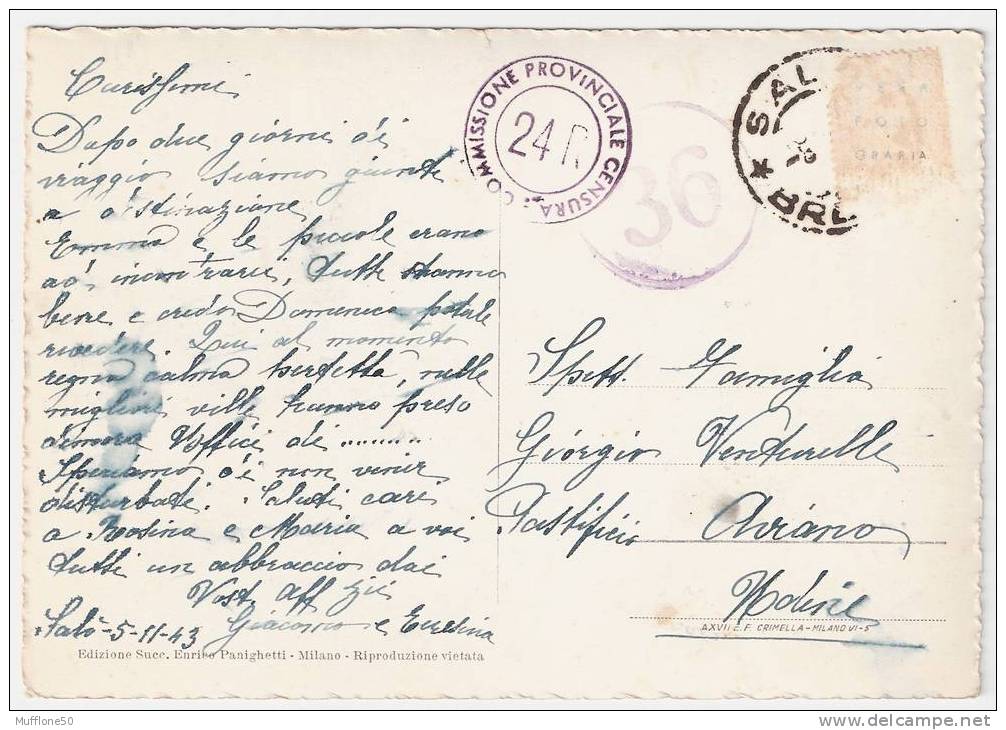 Carissimi
Dopo due giorni di
viaggio siamo giunti
a destinazione
Emma e le piccole erano
ad incontrarci, tutti stanno
bene e credo Domenica poterle
rivedere. Qui al momento
regna calma perfetta, nelle
migliori ville hanno preso
dimora Uffici di ..........
Speriamo di non venir
disturbati. Saluti cari
a Rosina e Maria a voi
tutti un abbraccio dai
Vost. aff zii
Giacomo e
Salò-5-11-43
Edizione Succ. Enrico Panighetti - Milano - Riproduzione vietata
COMMISSIONE PROVINCIALE CENSURA
24 R
36
SAL
BRE
VERA
FOTO
GRAFIA
Spett. Famiglia
Giorgio Venturelli
Pastificio Aviano
Udine
A.XVII E.F. CRIMELLA-MILANO VI-5
Mufflone50
delcampe.net